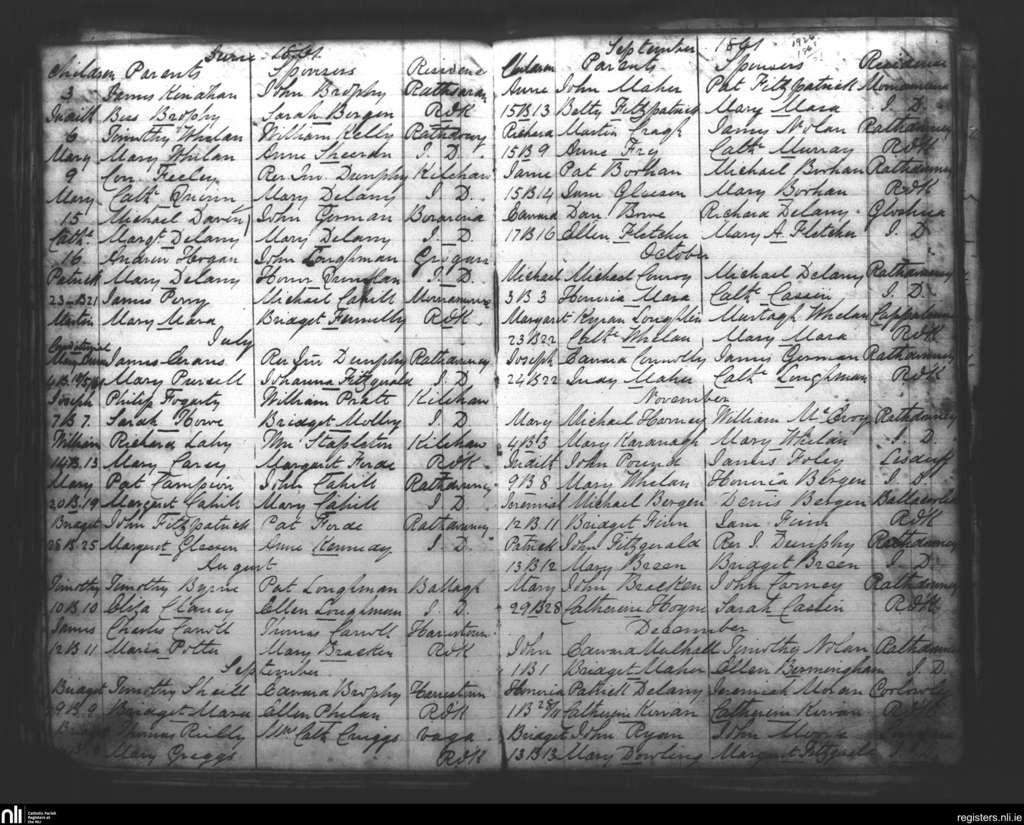 June 1861
Children Parents Sponsors Residence
3 Denis Kenahan John Brophy Rathsaran
Judith Bess Brophy Sarah Bergen R&K
6 Timothy Whelan William Kelly Rathdowney
Mary Mary Whelan Anne Sheeran I. D.
9 Con. Feeley Rev Jno. Dunphy Kilchaw
Mary Cath Quinn Mary Delany I D
15 Michael John Gorman
Cathe. Margt Delany Mary Delany I. D.
16 Andrew Hogan John Loughman Grogan
Patrick Mary Delany Honor I. D
23 B21 James Perry Michael Cahill
Martin Mary Mara Bridget R&K
July
James Evans Rev Jno Dunphy Rathdowney
Mary Pursell Johanna Fitzgerald I D
Joseph Philip Fogarty William Pratt Kilchaw
7B7. Sarah Howe Bridget Molloy I. D
William Richard Lahy Wm. Stapleton Kilchaw
14B.13 Mary Carey Margaret Forde R&K
Mary Pat Campion John Cahill Rathdowney
20B.19 Margaret Cahill Mary Cahill I D
Bridget John Fitzpatrick Pat Forde Rathdowney
28B.25 Margaret Gleeson Anne Kennedy I D.
August
Timothy Timothy Byrne Pat Loughman Ballagh
10B.10 Eliza Clancy Ellen Loughman I. D
James Charles Carroll Thomas Carroll Harristown
12B 11 Maria Potter Mary Bracken R&K
September
Bridget Timothy Sheill Edward Brophy
9B.9 Bridget Mara Ellen Phelan R&K
Thomas Reilly Mrs Cath Cruggs vaga
Mary Greggs R&K
September 1861
Children Parents Sponsors Residence
Anne John Maher Pat Fitzpatrick
15B13 Betty Fitzpatrick Mary Mara I. D
Richard Martin James Nolan Rathdowney
15B9 Anne Fry Cath. Murray R&K
Jane Pat Bohan Michael Bohan Rathdowney
15B14 Jane Gleeson Mary Bohan R&K
Edward Dan Bowe Richard Delany
17B16 Ellen Fletcher Mary A. Fletcher I. D
October
Michael Michael Conroy Michael Delany Rathdowney
3B3 Honoria Mara Cath Cassin I. D.
Margaret Kyran Loughlin Murtagh Whelan
23B22 Cath Whelan Mary Mara R&K
Joseph Edward Connolly James Gorman Rathdowney
24B22 Judy Maher Cath Loughman R&K
November
Mary Michael Harney William McEvoy Rathdowney
4B3 Mary Kavanagh Mary Whelan I. D.
Judith John Pound James Foley Lisduff
9B8 Mary Whelan Honoria Bergen I. D
Jeremiah Michael Bergen Denis Bergen
12B.11 Bridget Finn Jane Finn R&K
Patrick John Fitzgerald Rev J. Dunphy Rathdowney
13B12 Mary Breen Bridget Breen I. D
Mary John Bracken John Carney Rathdowney
29B28 Catherine Hoyne Sarah Cassin R&K
December
John Edward Mulhall Timothy Nolan Rathdowney
1B1 Bridget Maher Ellen Bermingham I. D
Honoria Patrick Delany Jeremiah Moran
1B 28/11 Catherine Kirwan Catherine Kirwan R&K
Bridget John Ryan John Moore
13B13 Mary Dowling Margaret Fitzgerald
nli
Catholic Parish Registers at the NLI
registers.nli.ie